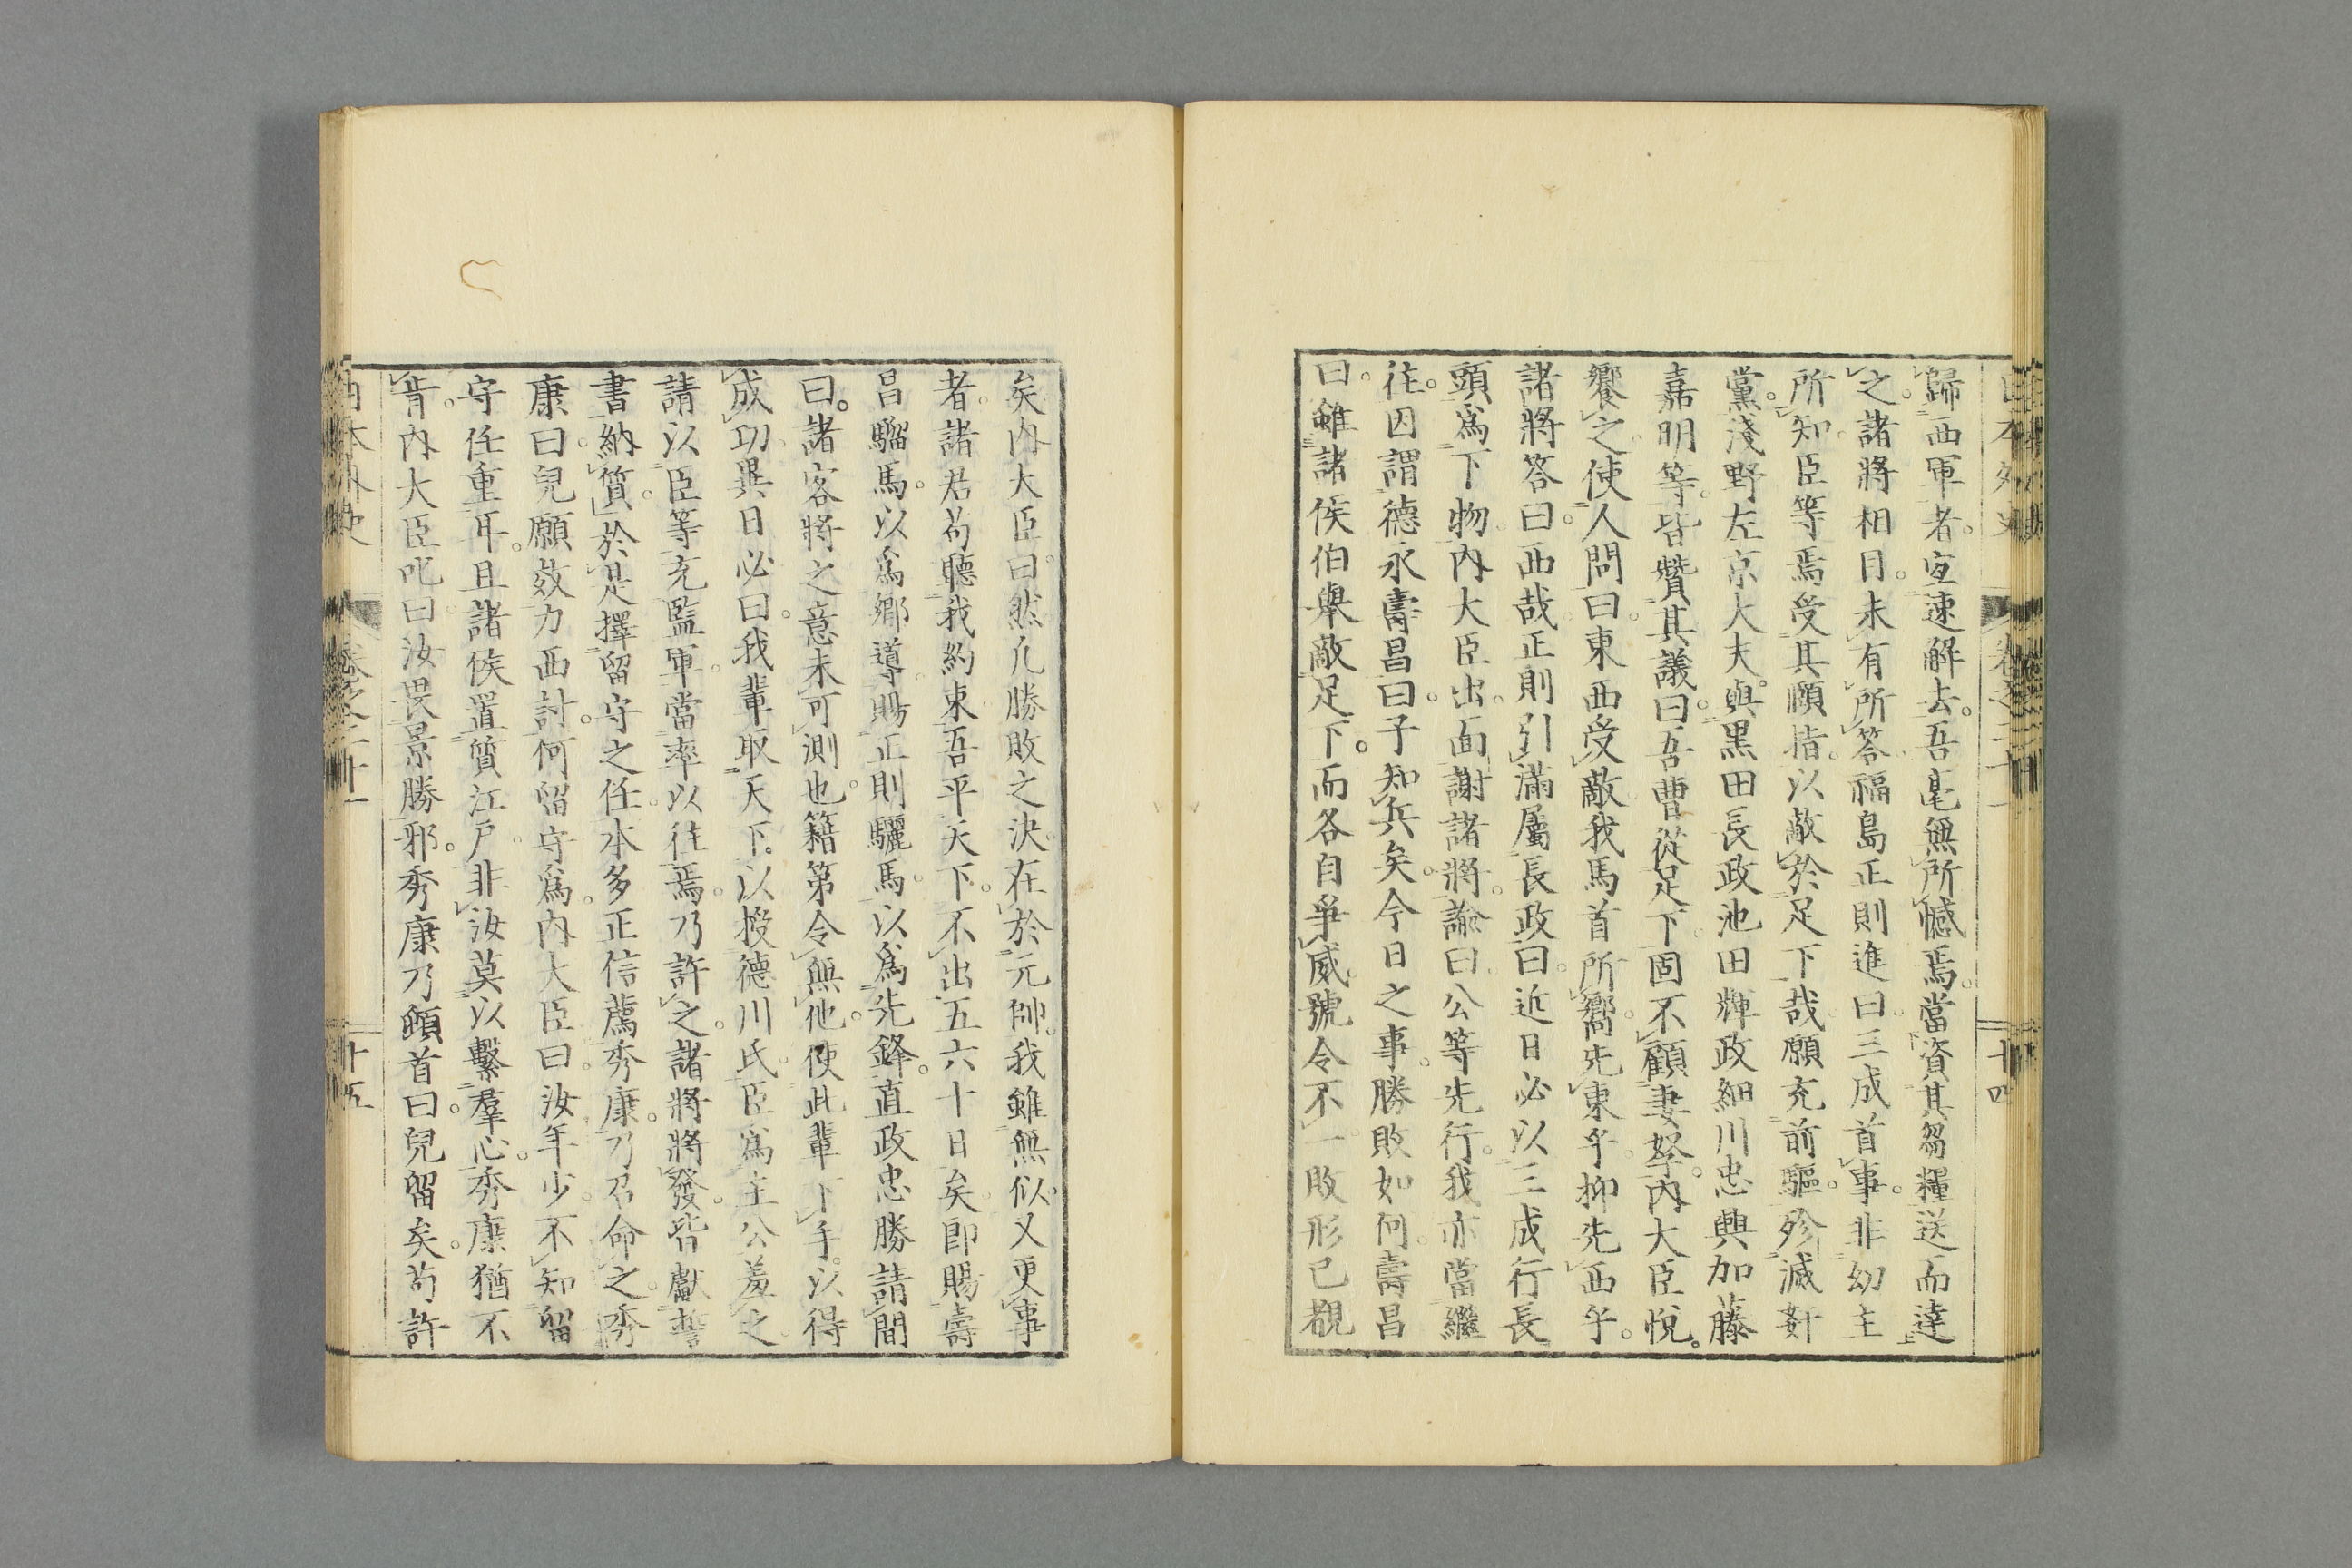 日本外史 卷之二十一 十四
歸西軍者。宜速解去。吾毫無所憾焉。當資其芻糧送而達
之。諸將相目。未有所答。福島正則進曰。三成首事。非幼主
所知。臣等焉受其頤指。以敵於足下哉。願充前驅。殄滅奸
黨。淺野左京大夫。與黑田長政池田輝政細川忠興加藤
嘉明等。皆贊其議。曰。吾曹從足下。固不顧妻孥。內大臣悅。
饗之。使人問曰。東西受敵。我馬首所嚮。先東乎。抑先西乎。
諸將答曰。西哉。正則引滿屬長政曰。近日必以三成行長
頭爲下物。內大臣出。面謝諸將。諭曰。公等先行。我亦當繼
往。因謂德永壽昌曰。子知兵矣。今日之事。勝敗如何。壽昌
曰。雖諸侯伯舉敵足下。而各自爭威。號令不一。敗形已覩
矣。內大臣曰。然。凡勝敗之決。在於元帥。我雖無似。又更事
者。諸君苟聽我約束。吾平天下。不出五六十日矣。卽賜壽
昌騮馬。以爲鄉導。賜正則驪馬。以爲先鋒。直政忠勝請間
曰。諸客將之意未可測也。籍第令無他。使此輩下手。以得
成功。異日必曰。我輩取天下。以授德川氏。臣爲主公羞之。
請以臣等充監軍。當率以往焉。乃許之。諸將將發。皆獻誓
書納質。於是擇留守之任。本多正信薦秀康。乃召命之。秀
康曰。兒願效力西討。何留守爲。內大臣曰。汝年少。不知留
守任重耳。且諸侯置質江戶。非汝莫以繫羣心。秀康猶不
肯。內大臣叱曰。汝畏景勝邪。秀康乃頓首曰。兒留矣。苟許
日本外史 卷之二十一 十五